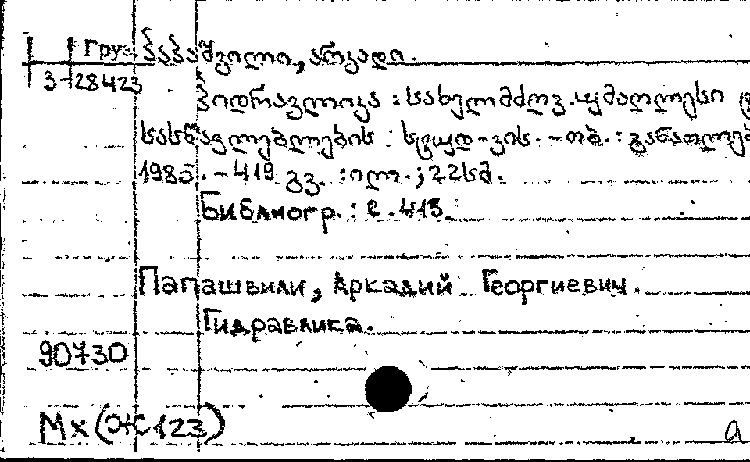 Груз პაპაშვილი, არკადი.
3-28423
ჰიდრავლიკა : სახელმძღვ. უმაღლესი
სასწავლებლების სტუდ-ვის. - თბ. : განათლებ
1985. - 419 გვ. : ილ. ; 22სმ.
Библиогр. : с. 413.
Папашвили, Аркадий Георгиевич.
Гидравлика.
90730
Мх (Ж123)
а